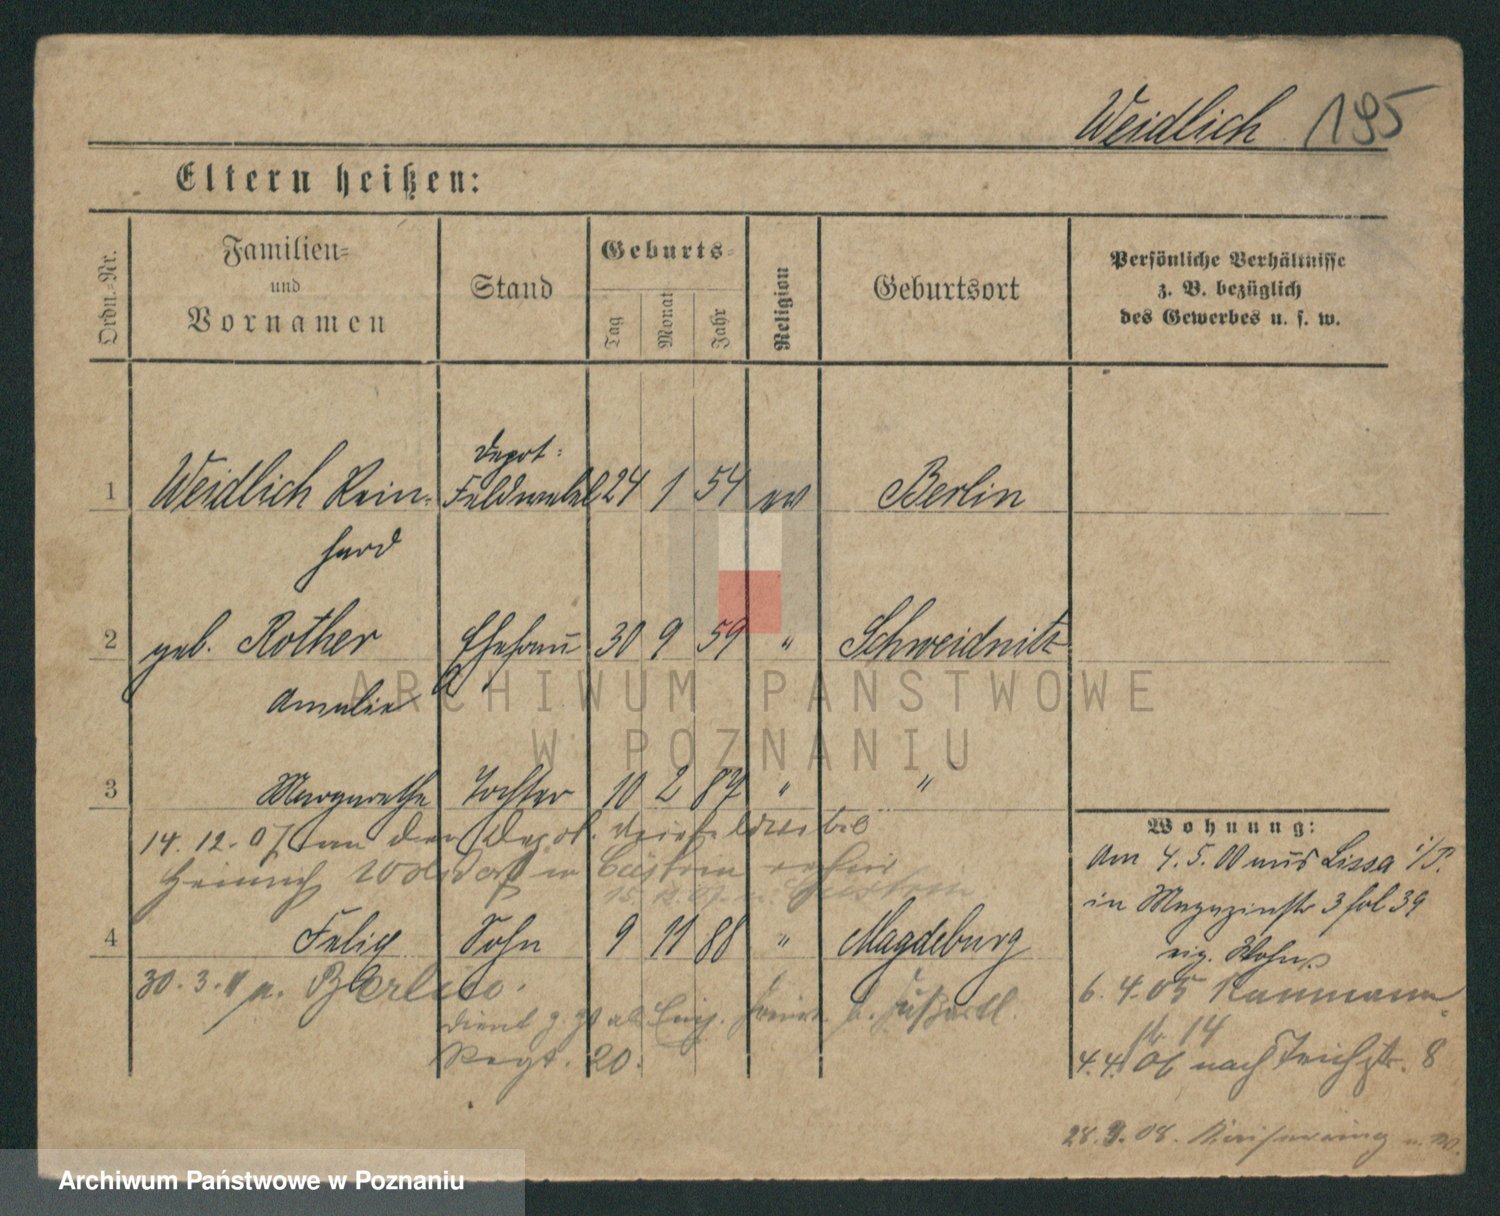 Weidlich 195
Eltern heißen:
Ordn.-Nr.
Familien-
und
Vornamen
Stand
Geburts-
Tag
Monat
Jahr
Religion
Geburtsort
Persönliche Verhältnisse
z. B. bezüglich
des Gewerbes u. s. w.
Depot-
1 Weidlich Rein- Feldwebel 24 1 54 ev Berlin
hard
2 geb. Rother Ehefrau 30 9 59 " Schweidnitz
Amalie
3 Margarethe Tochter 10 2 87 " "
14. 12. 07 an den Depot
Heinrich in Cüstrin
4 Felix Sohn 9 11 88 " Magdeburg
30. 3. 11 n. Berlin.
dient als Einj. Freiw. b. Fußartl.
Regt. 20.
Wohnung:
Am 4. 5. 00 aus Lissa i/P.
in Magazinstr 3 fol 39
eig. Wohn.
6. 4. 05 Naumann
str 14
4. 4. 06 nach Teichstr. 8
28. 9. 08.
ARCHIWUM PAŃSTWOWE
W POZNANIU
Archiwum Państwowe w Poznaniu